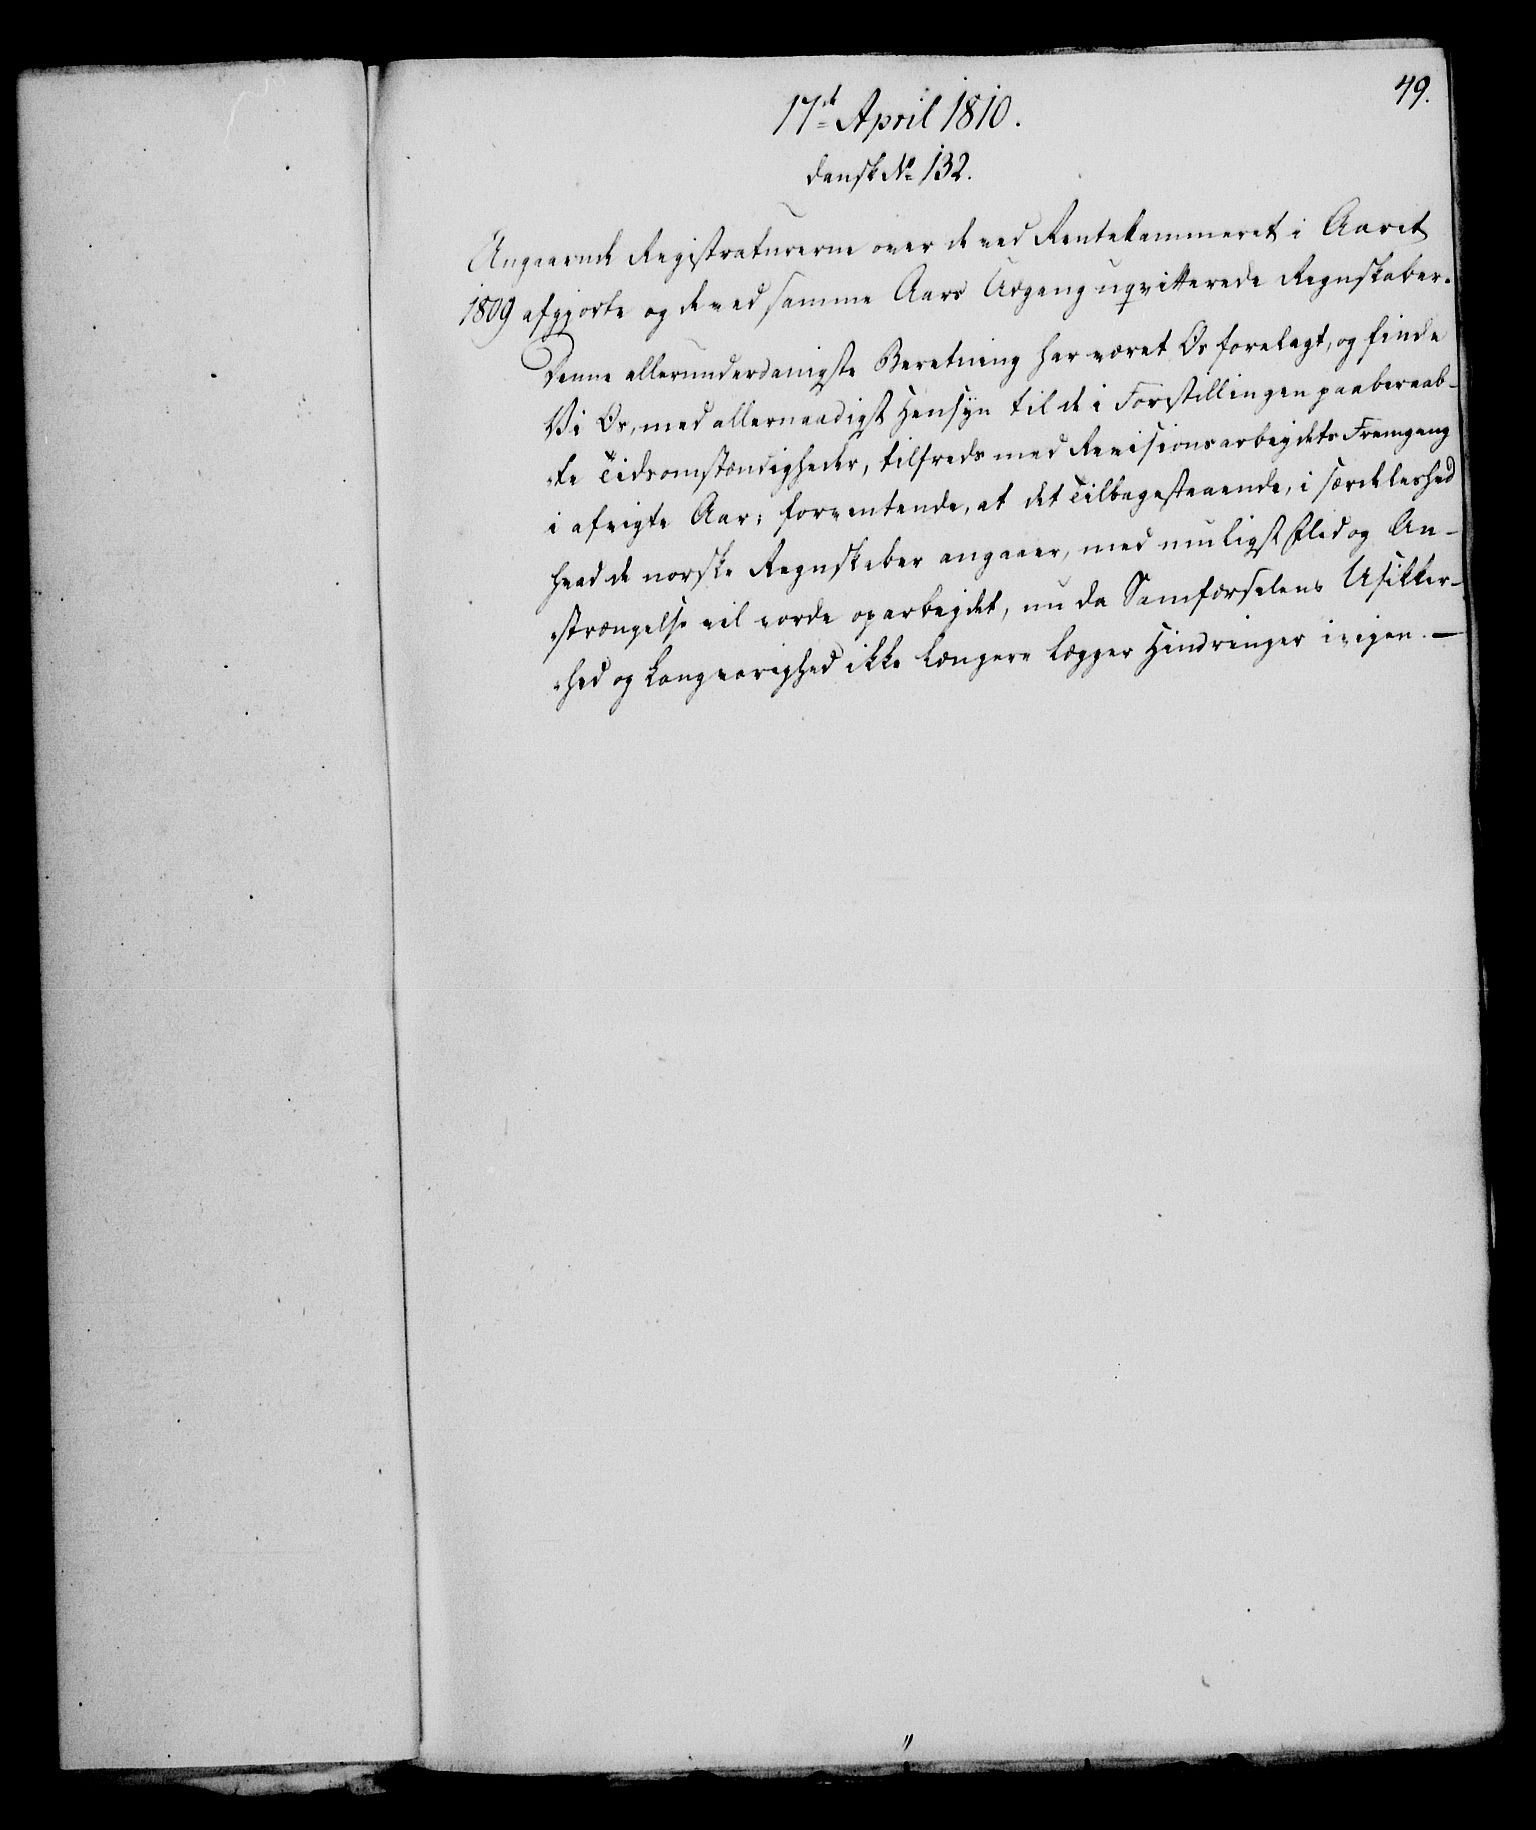 49.
17de April 1810.
dansk No 132.
Angaaende Registraturerne over de ved Rentekammeret i Aaret
1809 afgjorte og de ved samme Aars Udgang uqvitterede Regnskaber.
Denne allerunderdanigste Beretning har været Os forelagt, og finde
Vi Os, med allernaadigst Hensyn til de i Forestillingen paaberaab-
-te Tidsomstændigheder, tilfreds med Revisionsarbejdets Fremgang
i afvigte Aar; forventende, at det Tilbagestaaende, i særdeleshed
hvad de norske Regnskaber angaaer, med muligst Flid og An-
-strængelse vil vorde oparbejdet, nu da Samførselens Usikker-
-hed og Langvarighed ikke længere lægger Hindringer ivejen. —